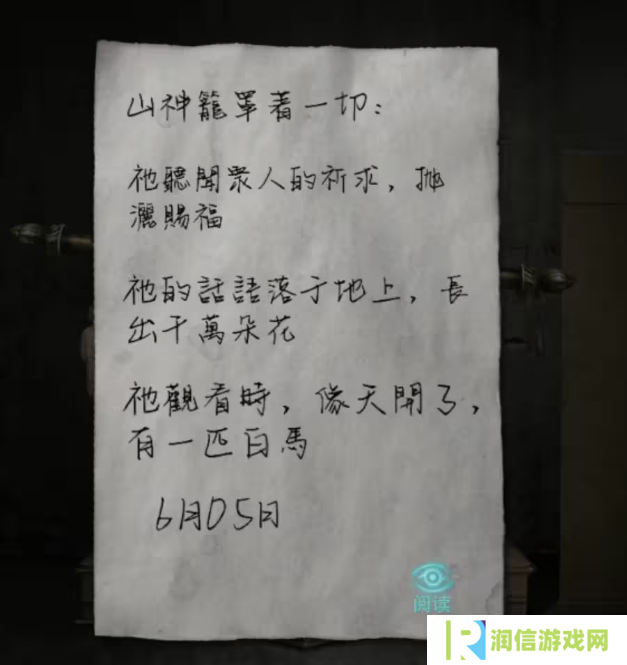 山神籠罩着一切:
祂聽聞眾人的祈求，拋
灑賜福
祂的話語落于地上，長
出千萬朵花
祂觀看時，像天開了，
有一匹白馬
6月05日
阅读
润信游戏网